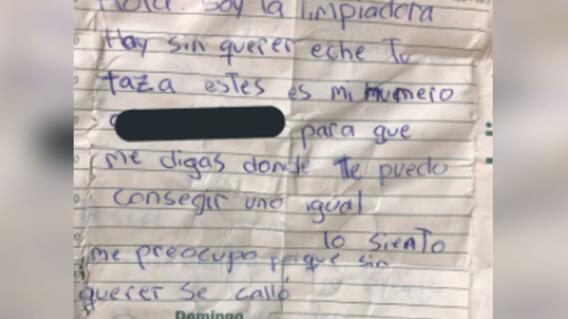 Hola. Soy la limpiadora
Hoy sin querer eche tu
taza estes es mi numero
para que
me digas donde te puedo
conseguir uno igual
lo siento
me preocupo porque sin
querer se calló
Domingo